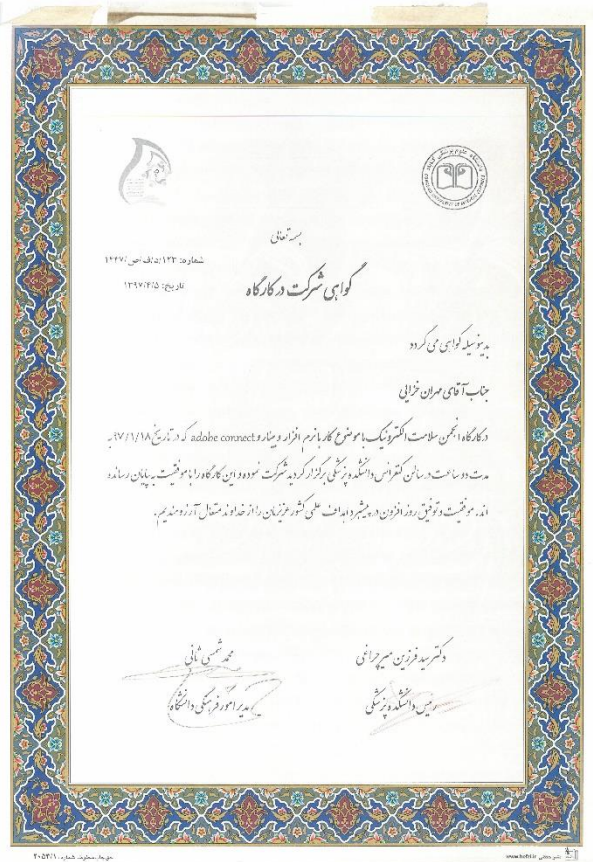 بسمه تعالی
شماره: ۱۲۳/د/ف/ص/۱۴۴۷
تاریخ: ۱۳۹۷/۴/۵
گواهی شرکت در کارگاه
بدینوسیله گواهی می گردد
جناب آقای مهران خزایی
در کارگاه انجمن سلامت الکترونیک با موضوع کار با نرم افزار وبینار و adobe connect که در تاریخ ۹۷/۱/۱۸ به
مدت دو ساعت در سالن کنفرانس دانشکده پزشکی برگزار گردید شرکت نموده و این کارگاه را با موفقیت به پایان رسانده
اند، موفقیت و توفیق روز افزون در پیشبرد اهداف علمی کشور عزیزمان را از خداوند متعال آرزومندیم.
دکتر سید فرزین میرچراغی
رییس دانشکده پزشکی
محمد شمسی ثانی
مدیر امور فرهنگی دانشگاه